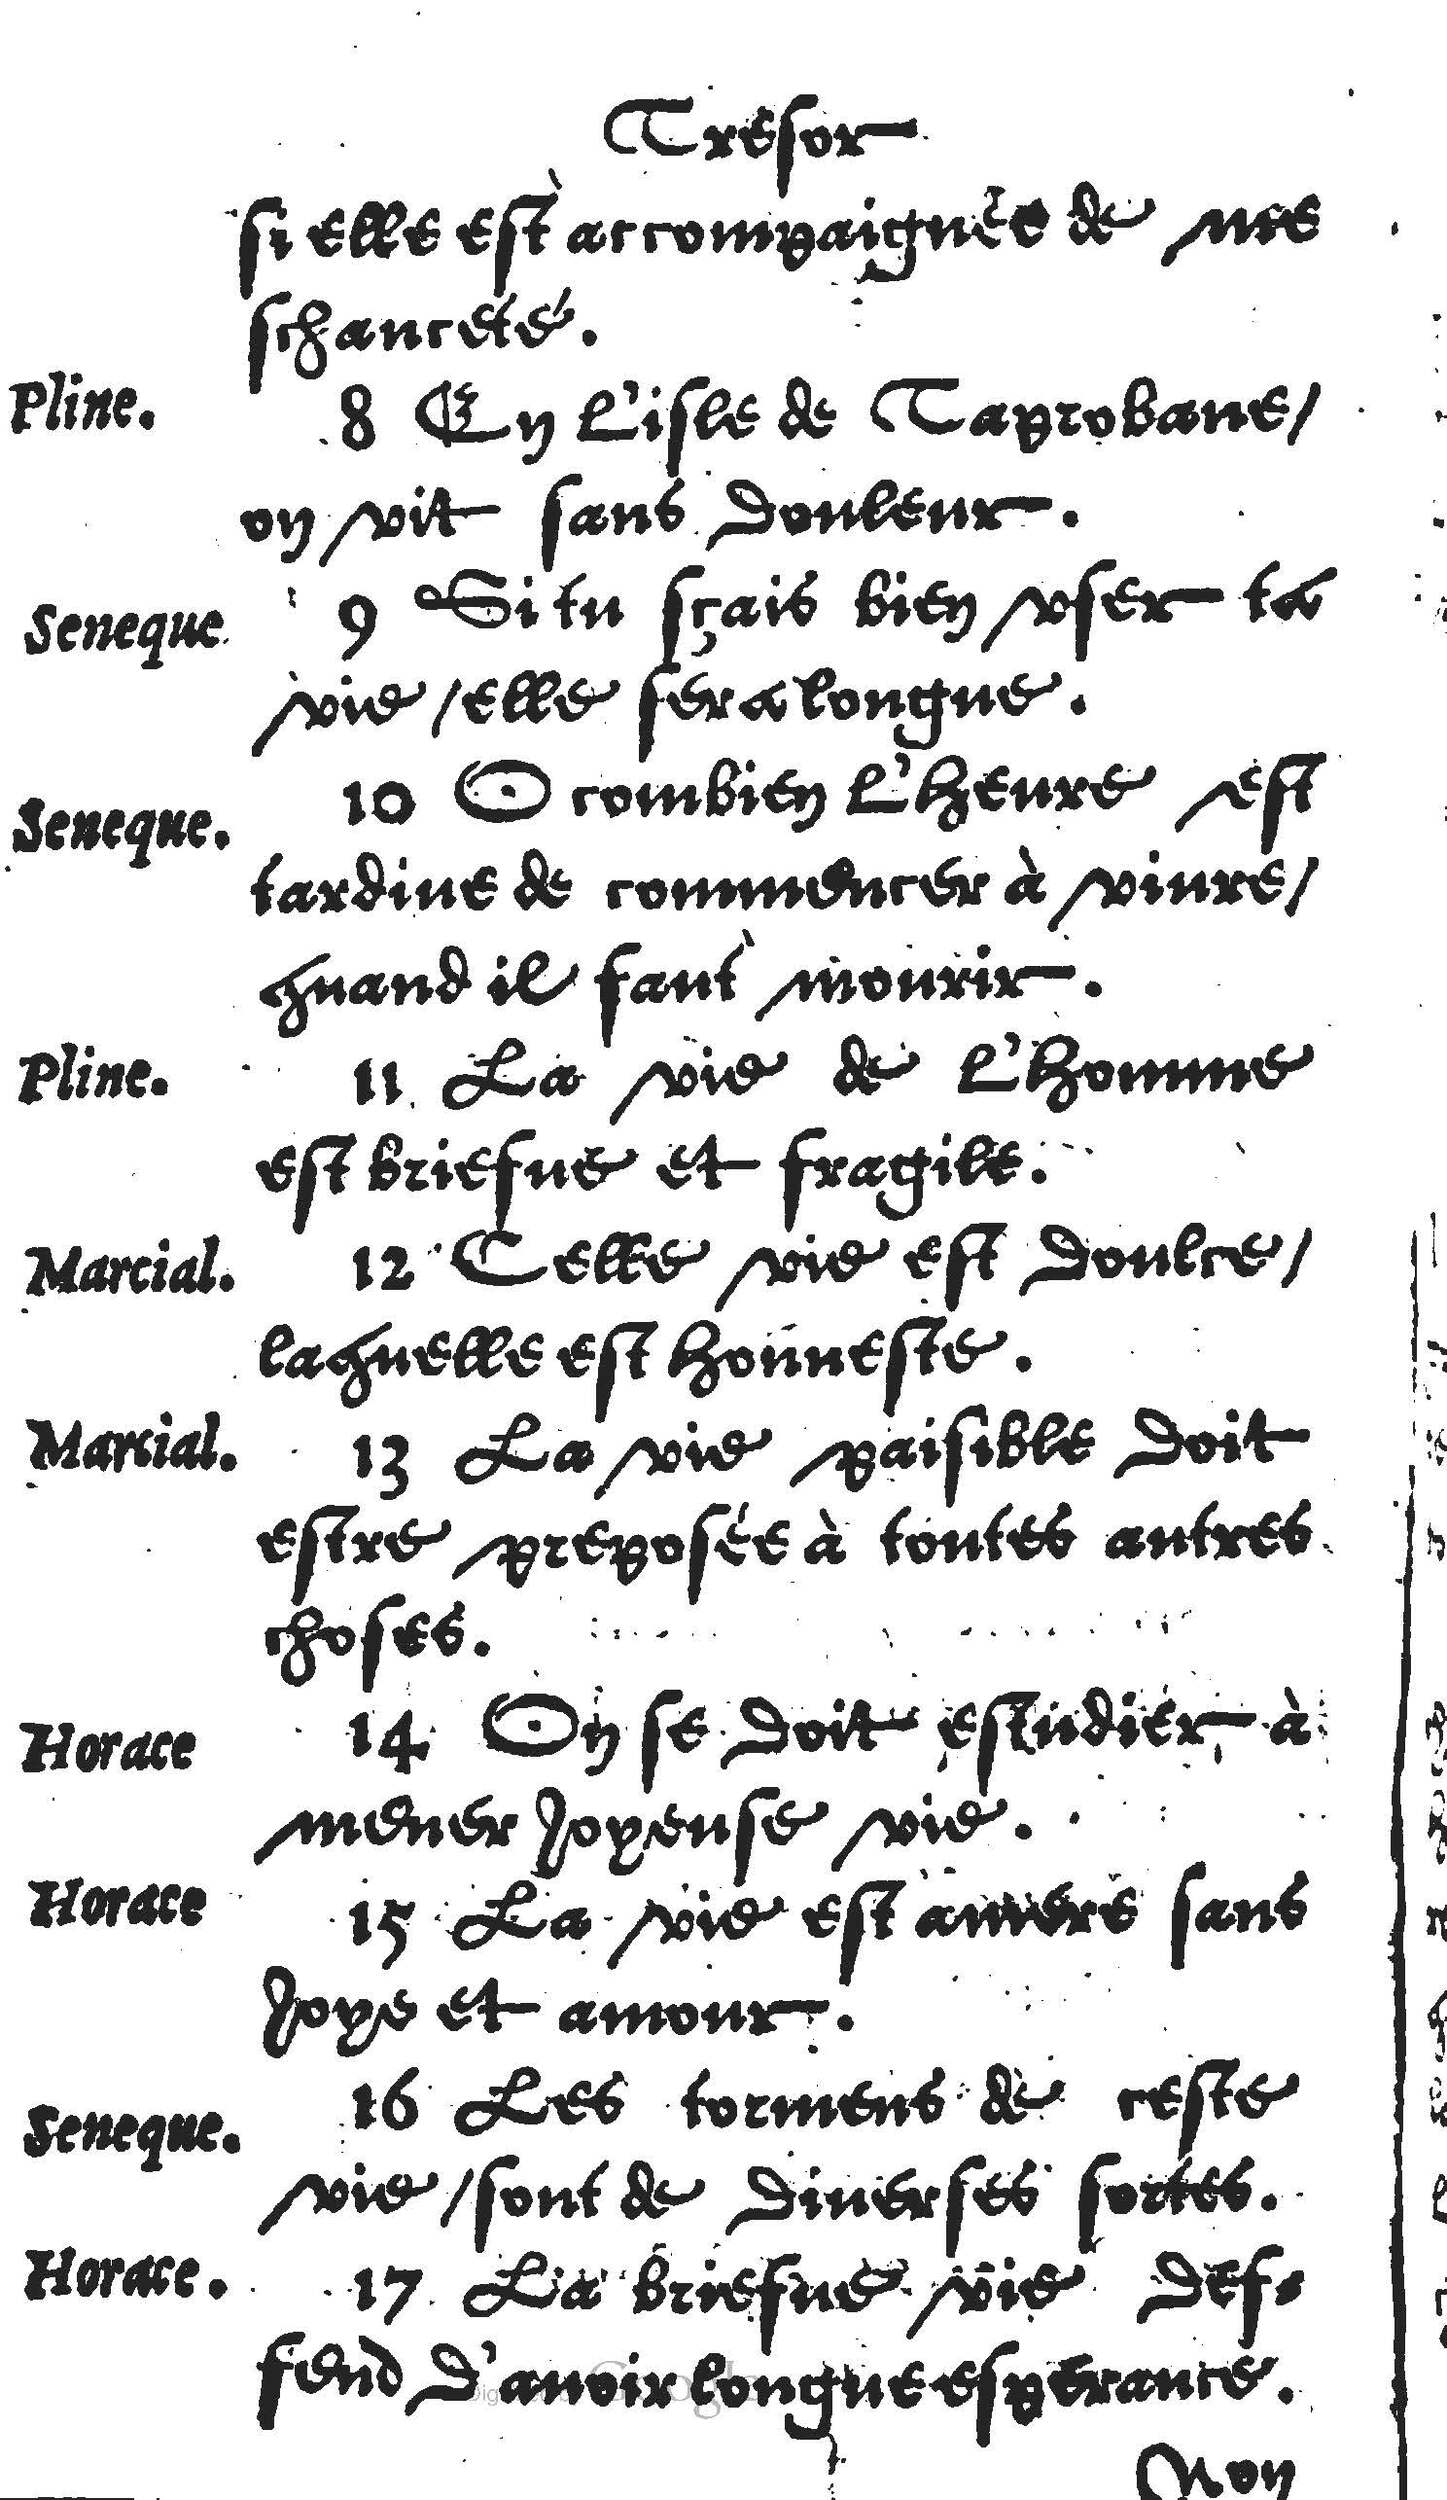 Tresor
si elle est accompaignée de me
schanceté.
Pline. 8 En l'isle de Taprobane/
on vit sans douleur.
Seneque 9 Si tu sçais bien vser ta
vie/elle sera longue.
Seneque. 10 O combien l'heure est
tardiue de commencer à viure/
quand il faut mourir.
Pline. 11 La vie de l'homme
est briefue et fragile.
Marcial. 12 Celle vie est doulce/
laquelle est honneste.
Marcial. 13 La vie paisible doit
estre preposée à toutes autres
choses.
Horace 14 On se doit estudier à
mener joyeuse vie.
Horace 15 La vie est amere sans
joye et amour.
Seneque. 16 Les tormens de ceste
vie/sont de diuerses sortes.
Horace. 17 La briefue vie def-
fend d'auoir longue esperance.
Non